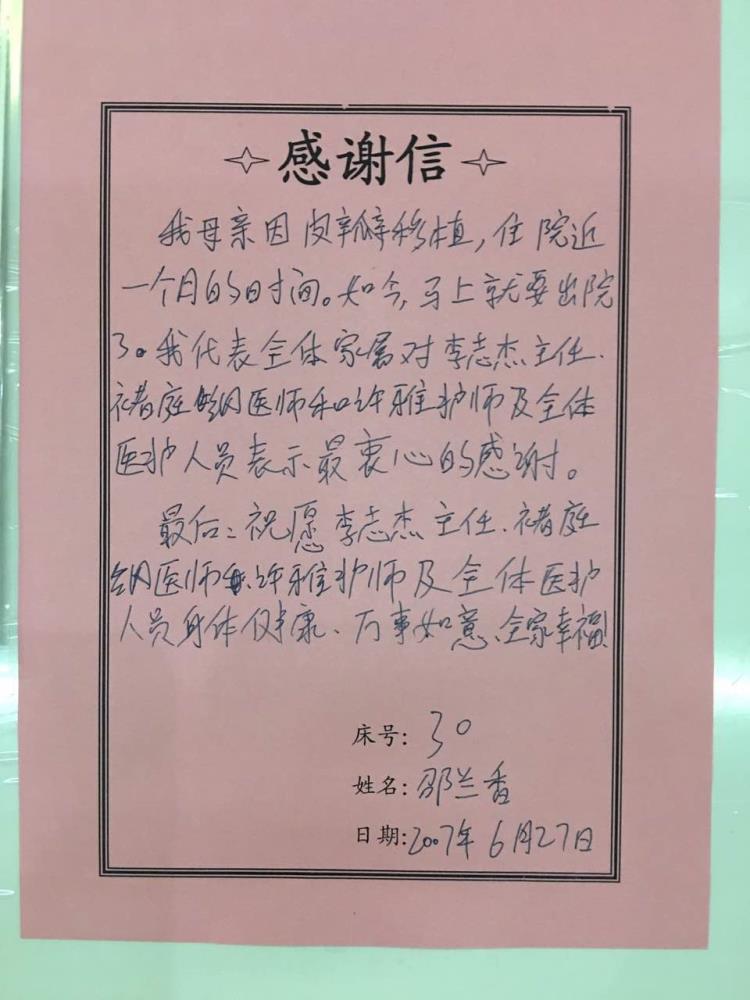 感谢信
我母亲因皮瓣移植，住院近
一个月的时间。如今，马上就要出院
了。我代表全体家属对李志杰主任、
褚庭纲医师和许雅护师及全体
医护人员表示最衷心的感谢。
最后：祝愿李志杰主任、褚庭
纲医师和许雅护师及全体医护
人员身体健康、万事如意、全家幸福！
床号：30
姓名：邵兰香
日期：2007年6月27日